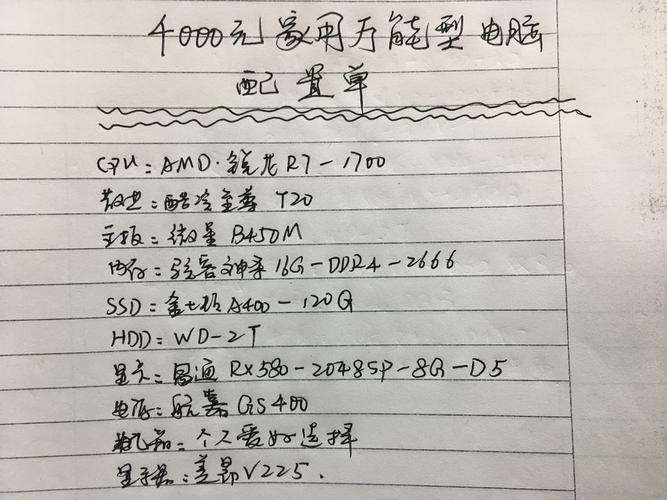 4000元家用万能型电脑
配置单
CPU：AMD·锐龙R7-1700
散热：酷冷至尊 T20
主板：微星B450M
内存：骇客神条16G-DDR4-2666
SSD：金士顿A400-120G
HDD：WD-2T
显卡：昌通RX580-2048SP-8G-D5
电源：航嘉GS400
机箱：个人爱好选择
显示器：差昂V225.